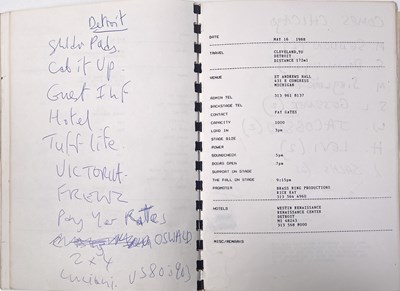 Detroit
Shldr Pads.
Cab it Up.
Guest Inf
Hotel.
Tuff life
VICTORIA.
FRENZ
Pay Yer Rates
OSWALD
2 x 4
US 80's 90's
DATE MAY 10 1988
TRAVEL CLEVELAND, TO
DETROIT
DISTANCE 172ml
VENUE ST ANDREWS HALL
431 E CONGRESS
MICHIGAN
ADMIN TEL 313 961 8137
BACKSTAGE TEL
CONTACT PAT GATES
CAPACITY 1000
LOAD IN 3pm
STAGE SIZE
POWER
SOUNDCHECK 5pm
DOORS OPEN 7pm
SUPPORT ON STAGE
THE FALL ON STAGE 9:15pm
PROMOTER BRASS RING PRODUCTIONS
RICK KAY
HOTELS WESTIN RENAISSANCE
RENAISSANCE CENTER
DETROIT
MI 48243
313 568 8000
MISC/REMARKS